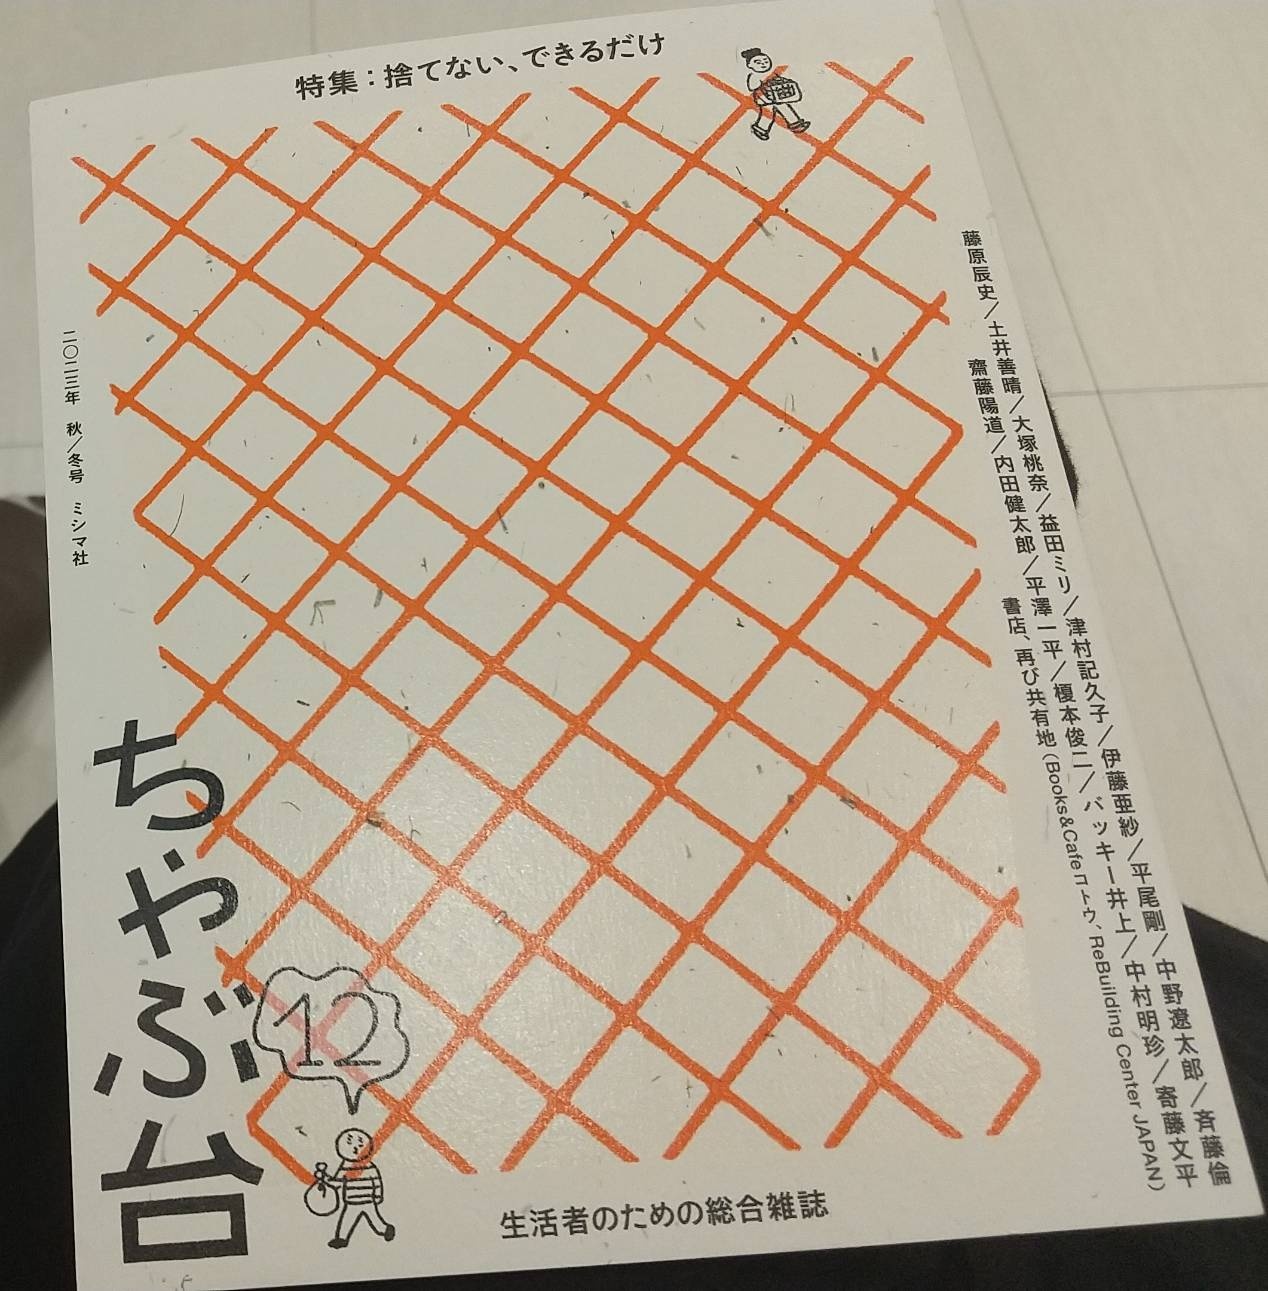 特集：捨てない、できるだけ
藤原辰史／土井善晴／大塚桃奈／益田ミリ／津村記久子／伊藤亜紗／平尾剛／中野遼太郎／斉藤倫
齋藤陽道／内田健太郎／平澤一平／榎本俊二／バッキー井上／中村明珍／寄藤文平
書店、再び共有地（Books&Cafeコトウ、ReBuilding Center JAPAN）
二〇二三年 秋／冬号 ミシマ社
ちゃぶ台
12
生活者のための総合雑誌